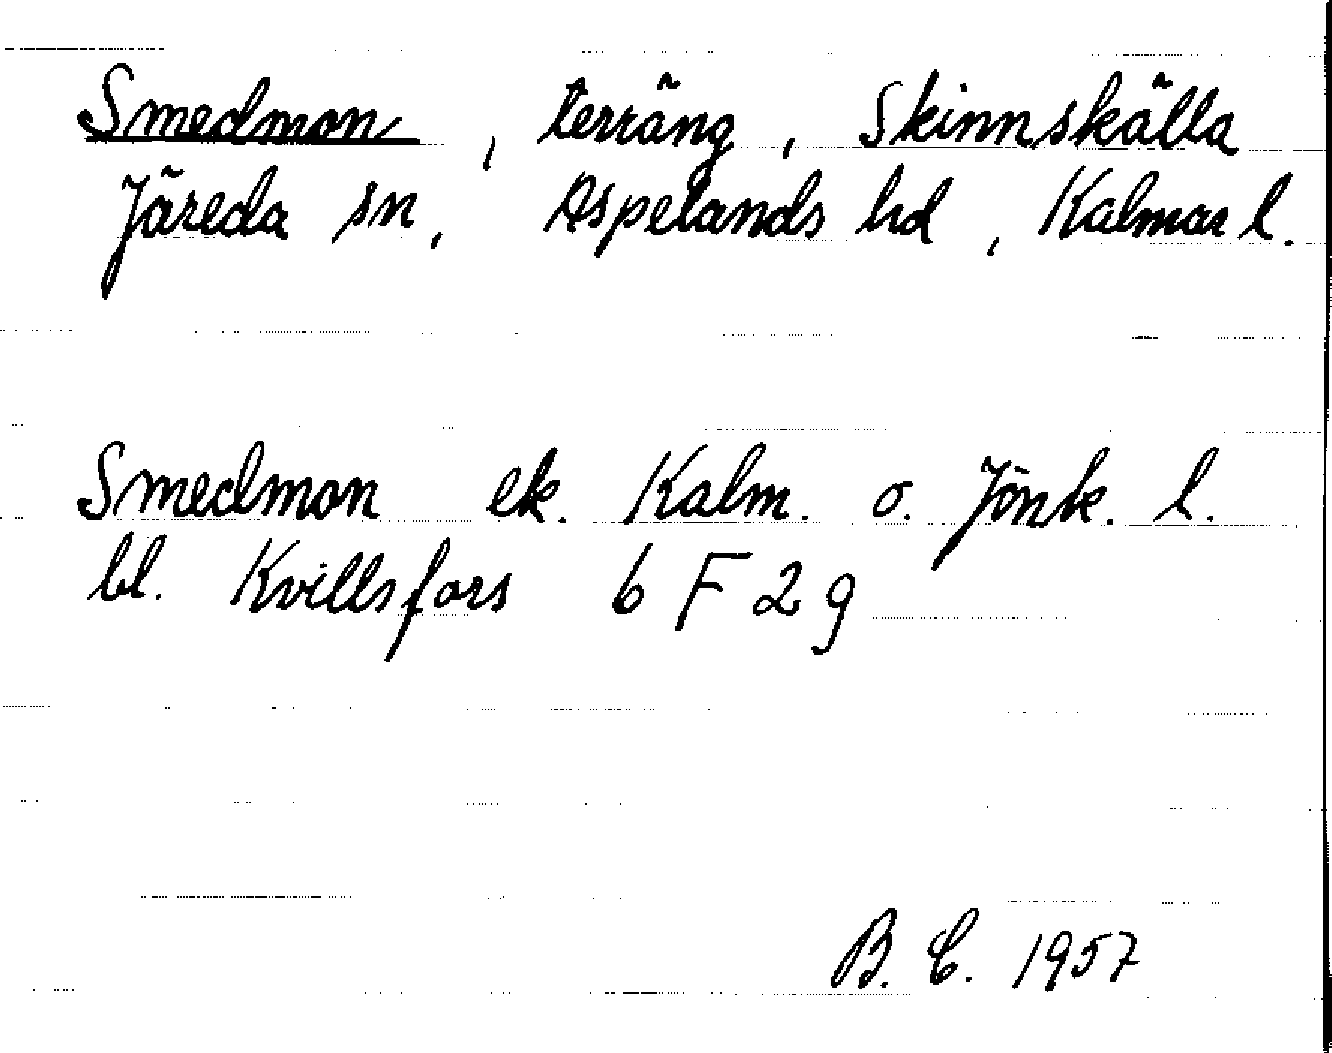 Smedmon, terräng, Skinnskälla
Järeda sn, Aspelands hd, Kalmar l.
Smedmon ek. Kalm. o. Jönk. l.
bl. Kvillsfors 6 F 2 g
B. C. 1957